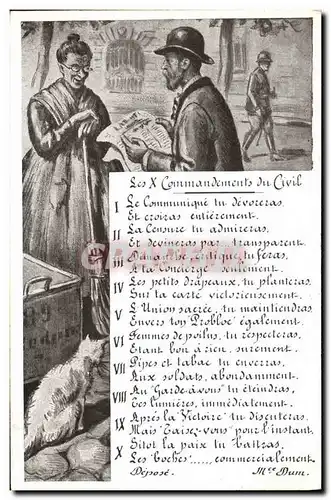 Les X Commandements du Civil
I Le Communiqué tu dévoreras
Et croiras entièrement.
II La Censure tu admireras,
Et devineras par transparent.
III critique, feras,
A ta Concierge seulement.
IV Les petits drapeaux, tu planteras
Sur la carte victorieusement.
V L'Union sacrée, tu maintiendras
Envers ton "Probloc" également.
VI Femmes de poilus, tu respecteras,
Etant bon à rien, surement.
VII Pipes et tabac tu enverras,
Aux soldats, abondamment.
VIII Au "Garde-à-vous" tu éteindras,
Tes lumières, immédiatement.
IX Après la "Victoire" tu discuteras,
Mais "Taisez-vous" pour l'instant.
X Sitot la paix tu battras,
Les "boches"....., commercialement.
Déposé. Mce Dum.